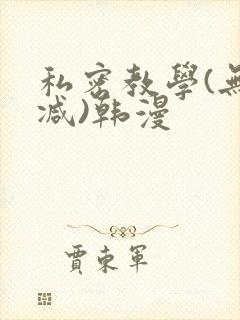 私密教學(無
减)韩漫
賈東軍